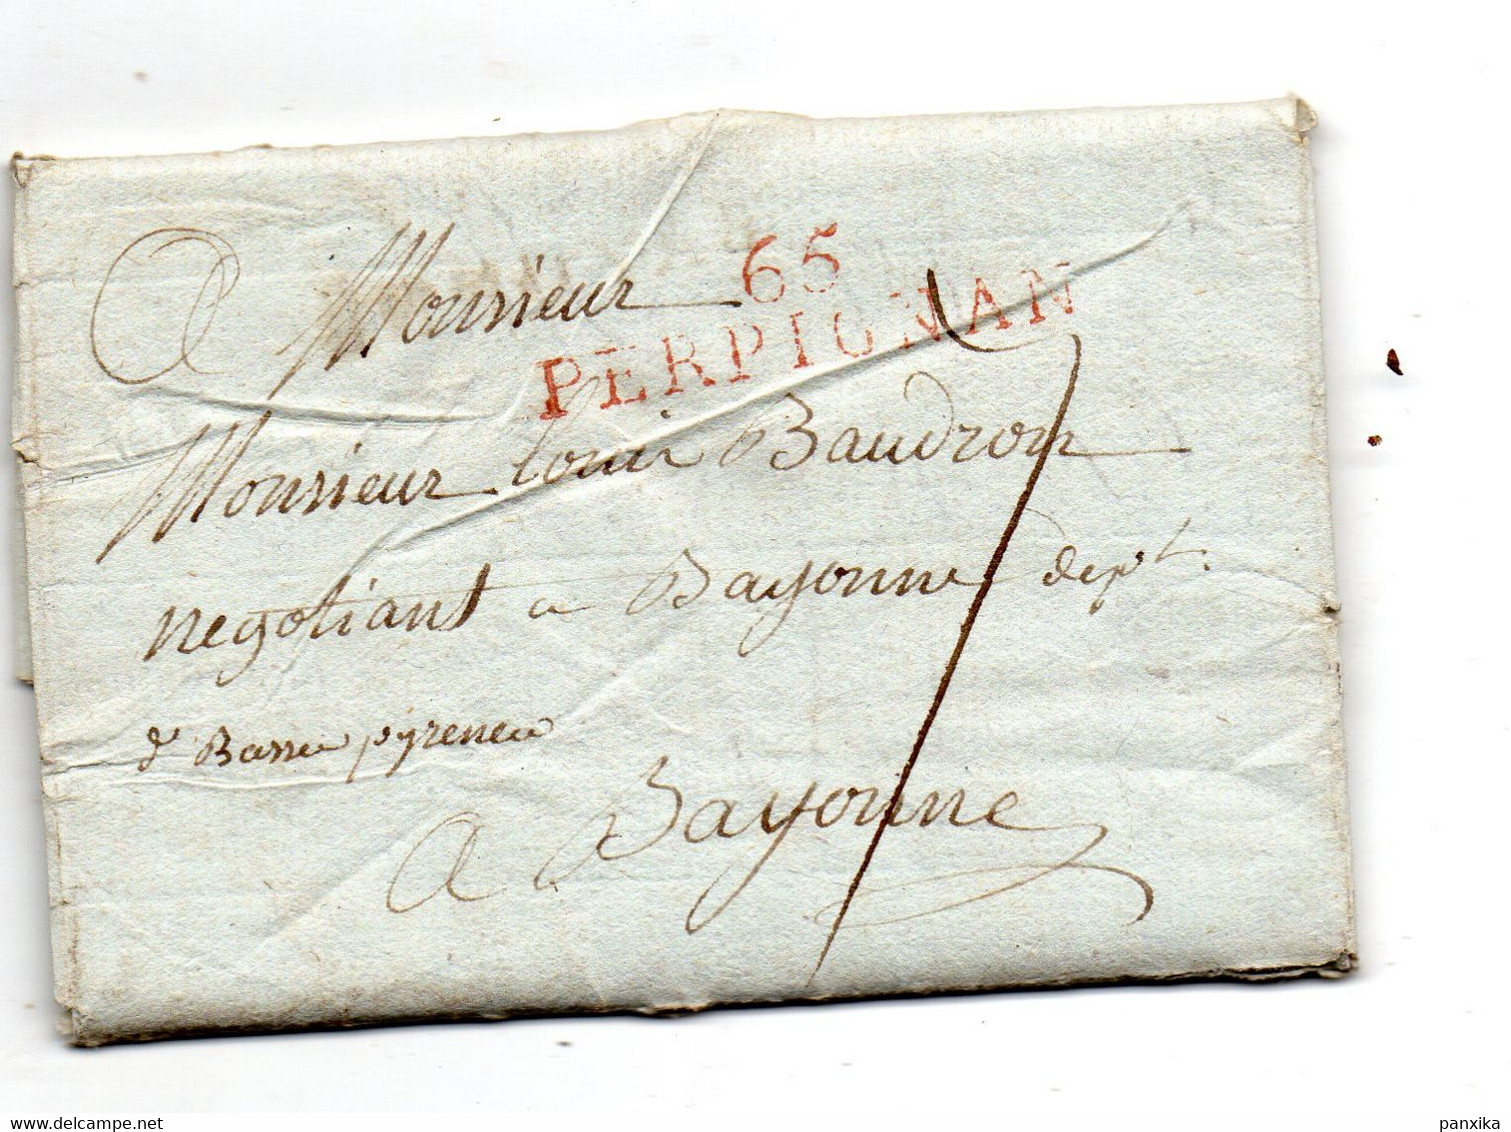 65
PERPIGNAN
A Monsieur
Monsieur louis Baudron
negotiant a Bayonne dept.
d Basses pyrenees
a Bayonne
7
delcampe.net
panxika